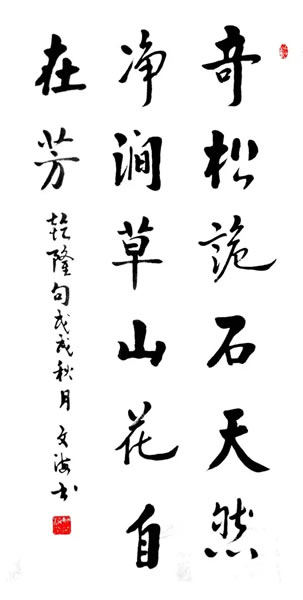 奇松诡石天然
净涧草山花自
在芳
乾隆句戊戌秋月文海书